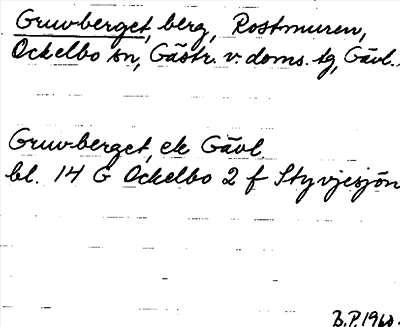 Gruvberget, berg, Rostmuren,
Ockelbo sn, Gästr. v. doms. tg, Gävl.
Gruvberget, ek Gävl.
bl. 14 G Ockelbo 2 f Styvjesjön
B.P. 1960.